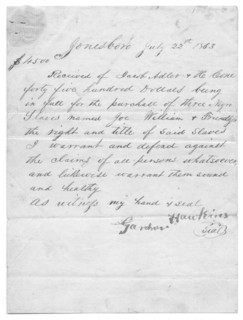 Jonesboro July 22nd 1863
$4500
Received of Jacob Adler & Herman Cone
forty five hundred Dollars being
in full for the purchase of three Negro
Slaves named Joe William &
the right and title of Said Slaves
I warrant and defend against
the claims of all persons whatsoever
and likewise warrant them sound
and healthy
As witness my hand & seal
Hawkins
(Seal)